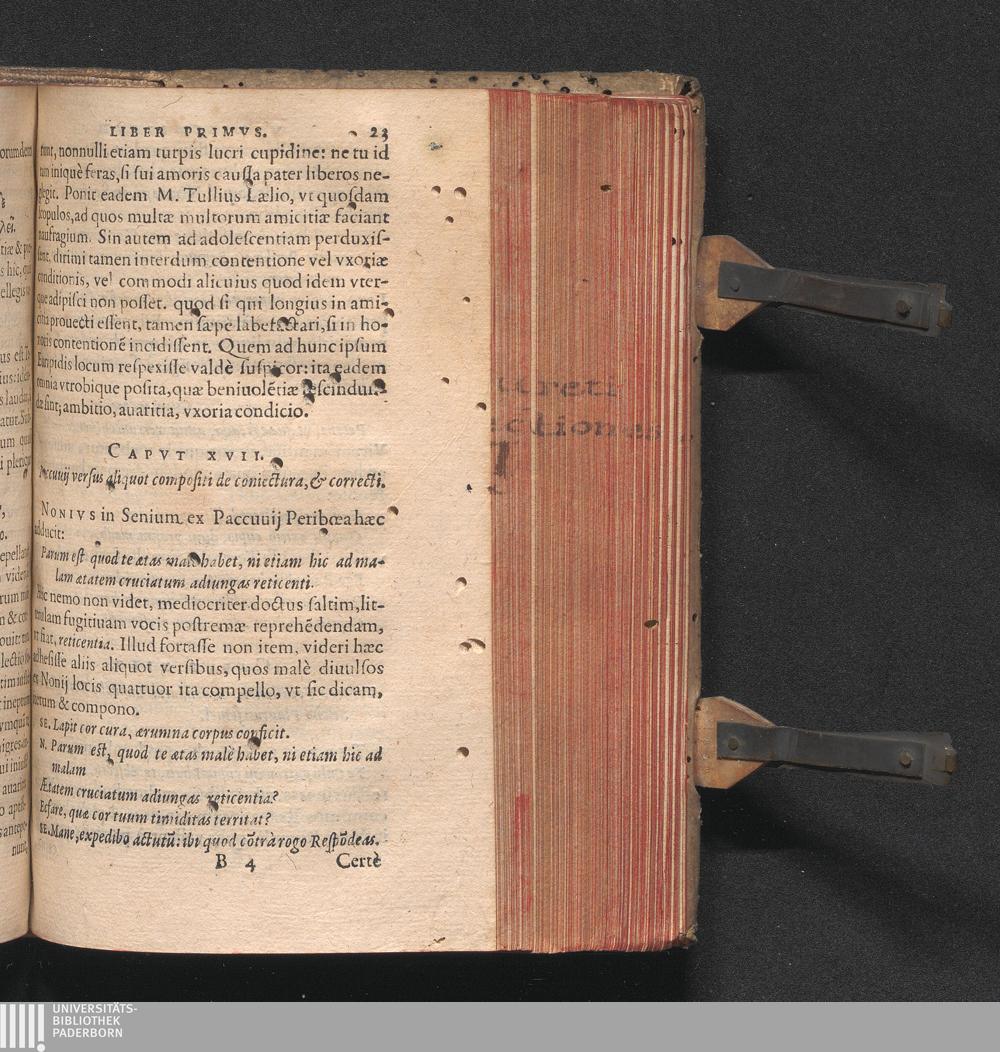 LIBER PRIMVS. 23
runt, nonnulli etiam turpis lucri cupidine: ne tu id
tam iniquè feras, si sui amoris caussa pater liberos ne-
glegit. Ponit eadem M. Tullius Lælio, vt quosdam
scopulos, ad quos multæ multorum amicitiæ faciant
naufragium. Sin autem ad adolescentiam perduxis-
sent, dirimi tamen interdum contentione vel vxoriæ
conditionis, vel commodi alicuius quod idem vter-
que adipisci non posset. quod si qui longius in ami-
citia prouecti essent, tamen sæpe labefactari, si in ho-
noris contentionẽ incidissent. Quem ad hunc ipsum
Euripidis locum respexisse valdè suspicor: ita eadem
omnia vtrobique posita, quæ beniuolẽtiæ descindun-
dæ sint; ambitio, auaritia, vxoria condicio.
CAPVT XVII.
Paccuuij versus aliquot compositi de coniectura, & correcti.
NONIVS in Senium ex Paccuuij Peribœa hæc
adducit:
Parum est quod te ætas male habet, ni etiam hic ad ma-
lam ætatem cruciatum adiungas reticenti.
Hîc nemo non videt, mediocriter doctus saltim, lit-
terulam fugitiuam vocis postremæ reprehẽdendam,
vt fiat, reticentia. Illud fortasse non item, videri hæc
adhesisse aliis aliquot versibus, quos malè diuulsos
ex Nonij locis quattuor ita compello, vt sic dicam,
rerum & compono.
SE. Lapit cor cura, ærumna corpus conficit.
N. Parum est, quod te ætas malè habet, ni etiam hic ad
malam
Ætatem cruciatum adiungas reticentia?
Eefare, quæ cor tuum timiditas territat?
SE. Mane, expedibo actutũ: ibi quod cõtrà rogo Respõdeas.
B 4 Certè
UNIVERSITÄTS-
BIBLIOTHEK
PADERBORN